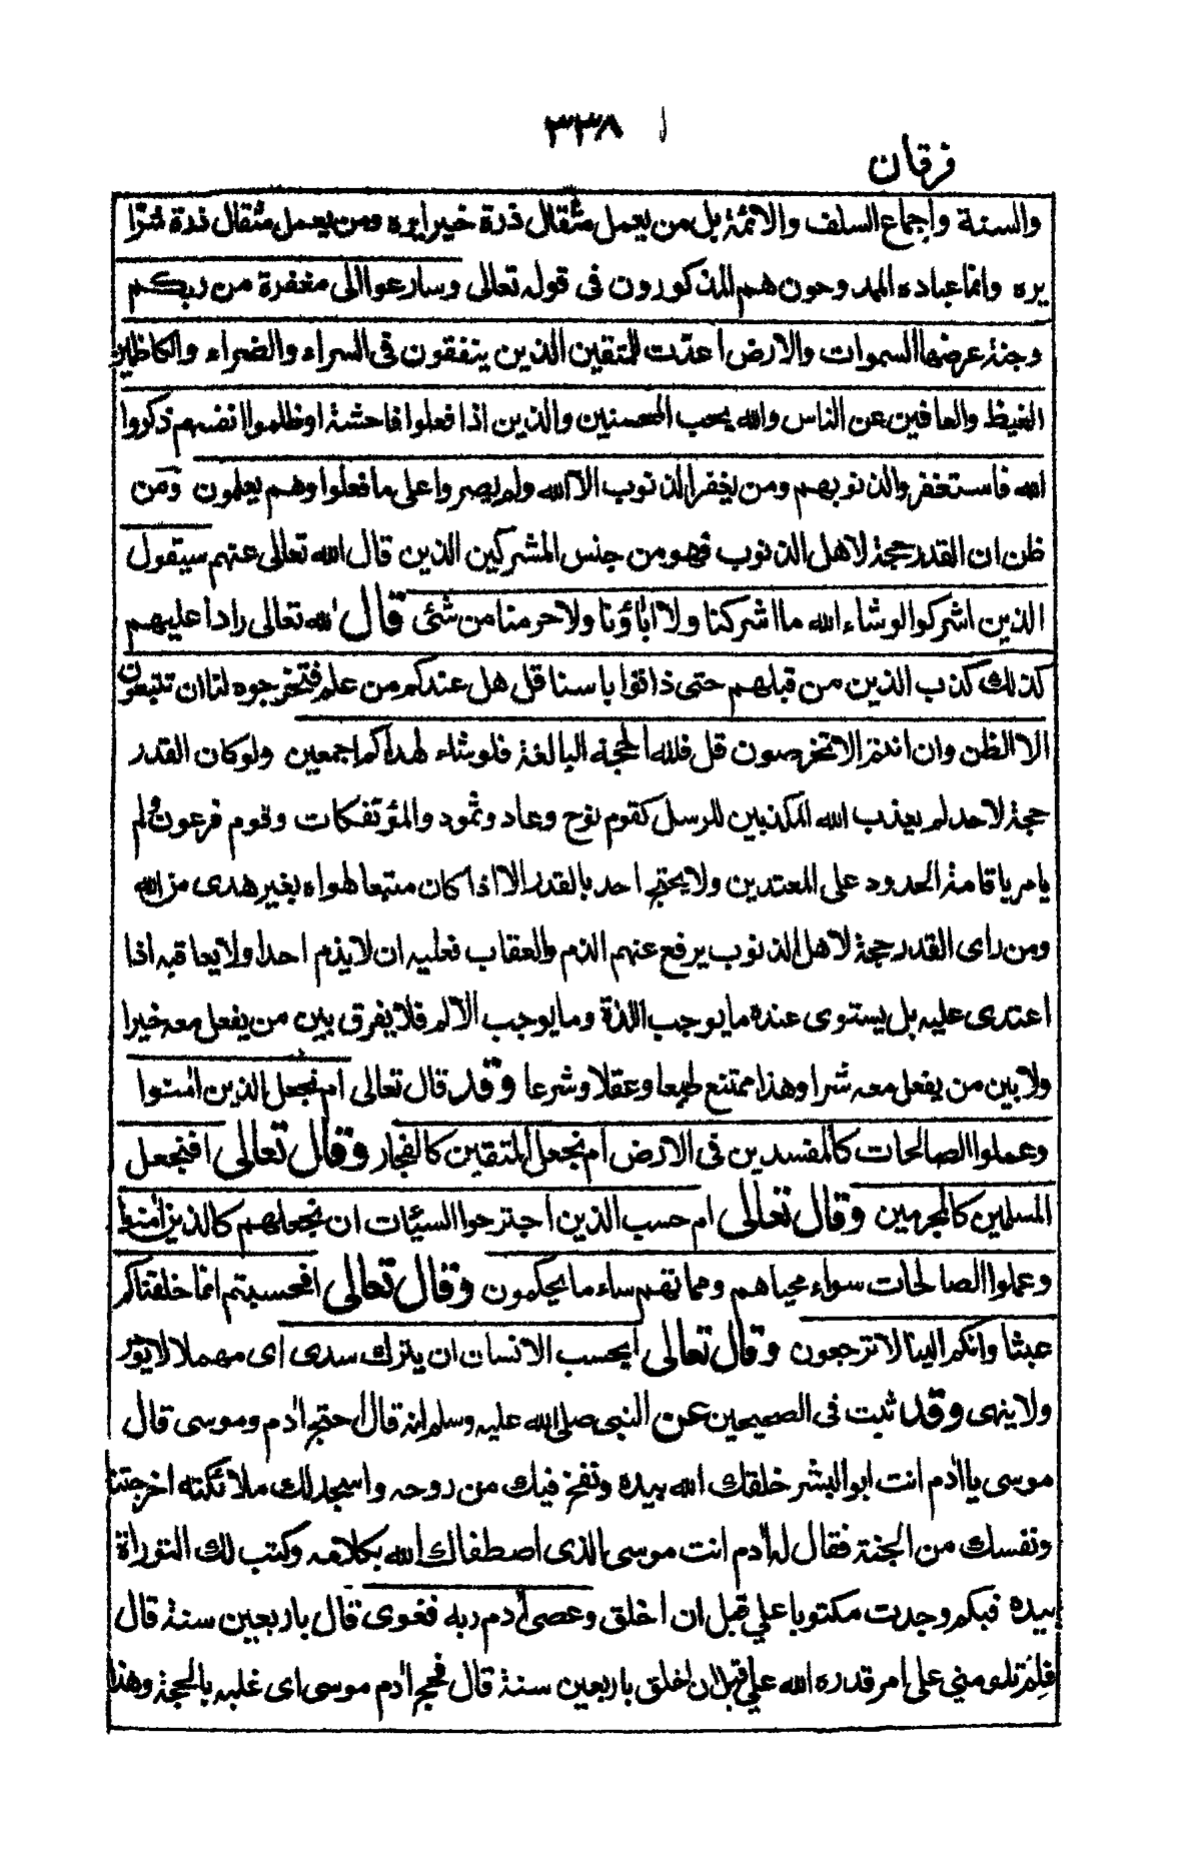 ٣٣٨
فرقان
والسنة واجماع السلف والائمة بل من يعمل مثقال ذرة خيرا يره ومن يعمل مثقال ذرة شرّا
يره وانما عباده الممدوحون هم المذكورون فى قوله تعالى وسارعوا الى مغفرة من ربكم
وجنة عرضها السموات والارض اعدّت للمتقين الذين ينفقون فى السراء والضراء والكاظمين
الغيظ والعافين عن الناس والله يحب المحسنين والذين اذا فعلوا فاحشة او ظلموا انفسهم ذكروا
الله فاستغفروا لذنوبهم ومن يغفر الذنوب الا الله ولم يصروا على ما فعلوا وهم يعلمون ومن
ظن ان القدر حجة لاهل الذنوب فهو من جنس المشركين الذين قال الله تعالى عنهم سيقول
الذين اشركوا لو شاء الله ما اشركنا ولا اباؤنا ولا حرمنا من شئى قال الله تعالى رادا عليهم
كذلك كذب الذين من قبلهم حتى ذاقوا باسنا قل هل عندكم من علم فتخرجوه لنا ان تتبعون
الا الظن وان انتم الا تخرصون قل فلله الحجة البالغة فلو شاء لهداكم اجمعين ولو كان القدر
حجة لاحد لم يعذب الله المكذبين للرسل كقوم نوح وعاد وثمود والمؤتفكات وقوم فرعون ولم
يامر باقامة الحدود على المعتدين ولا يحتج احد بالقدر الا اذا كان متبعا لهواه بغير هدى من الله
ومن راى القدر حجة لاهل الذنوب يرفع عنهم الذم والعقاب فعليه ان لا يذم احدا ولا يعاقبه اذا
اعتدى عليه بل يستوى عنده ما يوجب اللذة وما يوجب الالم فلا يفرق بين من يفعل معه خيرا
ولا بين من يفعل معه شرا وهذا ممتنع طبعا وعقلا وشرعا وقد قال تعالى ام نجعل الذين امنوا
وعملوا الصالحات كالمفسدين فى الارض ام نجعل المتقين كالفجار وقال تعالى افنجعل
المسلمين كالمجرمين وقال تعالى ام حسب الذين اجترحوا السيئات ان نجعلهم كالذين امنوا
وعملوا الصالحات سواء محياهم ومماتهم ساء ما يحكمون وقال تعالى افحسبتم انما خلقناكم
عبثا وانكم الينا لا ترجعون وقال تعالى ايحسب الانسان ان يترك سدى اى مهملا لا يؤمر
ولا ينهى وقد ثبت فى الصحيحين عن النبى صلى الله عليه وسلم انه قال احتج ادم وموسى قال
موسى يا ادم انت ابو البشر خلقك الله بيده ونفخ فيك من روحه واسجد لك ملائكته اخرجتنا
ونفسك من الجنة فقال له ادم انت موسى الذى اصطفاك الله بكلامه وكتب لك التوراة
بيده فبكم وجدت مكتوبا علي قبل ان اخلق وعصى ادم ربه فغوى قال باربعين سنة قال
فلم تلومني على امر قدره الله علي قبل ان اخلق باربعين سنة قال فحج ادم موسى اى غلبه بالحجة وهذا